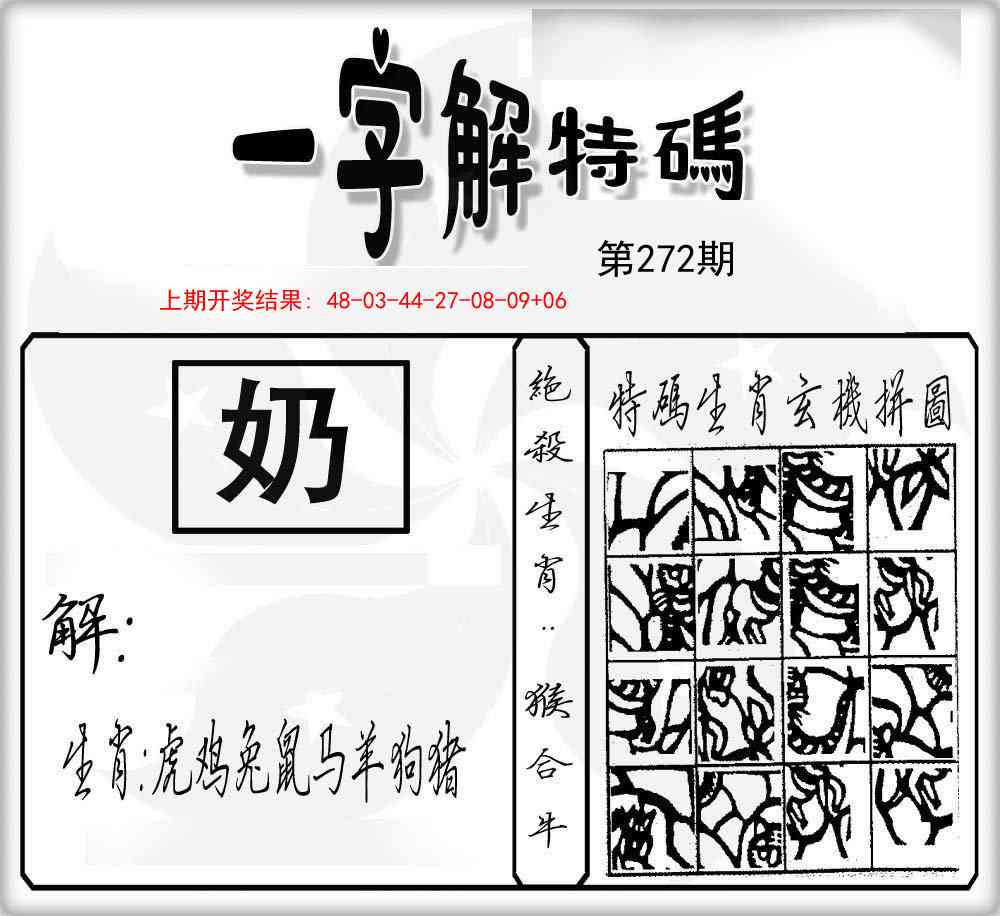 一字解特碼
第272期
上期开奖结果: 48-03-44-27-08-09+06
奶
解:
生肖:虎鸡兔鼠马羊狗猪
絶殺生肖:猴合牛
特碼生肖玄機拼圖